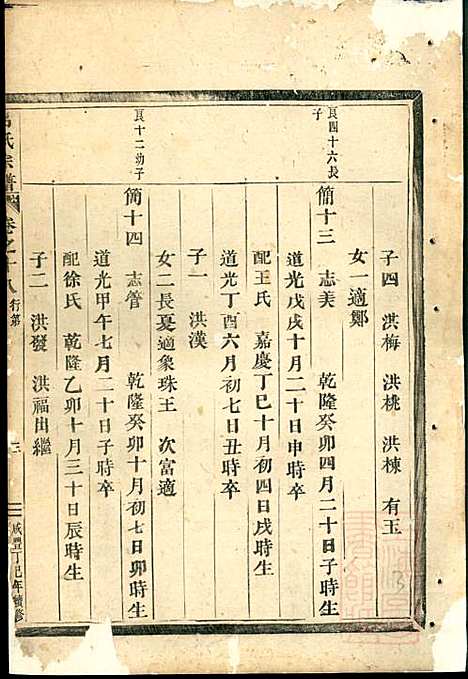 子四 洪梅 洪桃 洪棟 有玉
女一適鄭
良四十六長子
簡十三 志美 乾隆癸卯四月二十日子時生
道光戊戌十月二十日申時卒
配王氏 嘉慶丁巳十月初四日戌時生
道光丁酉六月初七日丑時卒
子一 洪漢
女二長夏適象珠王 次富適
良十二幼子
簡十四 志管 乾隆癸卯十月初七日卯時生
道光甲午七月二十日子時卒
配徐氏 乾隆乙卯十月三十日辰時生
子二 洪發 洪福出繼
氏宗譜 卷之十八 行第 咸豐丁巳年續修
13